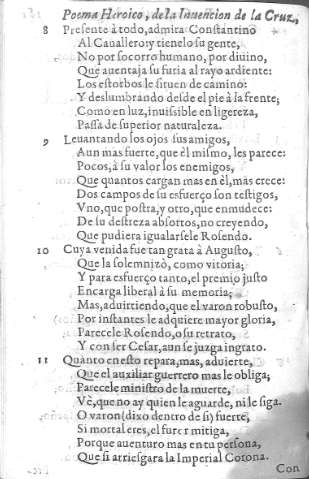 Poema Heroico, de la Inuencion de la Cruz,
8 Presente à todo, admira Constantino
Al Cauallero: y tienelo su gente,
No por socorro humano, por diuino,
Que auentaja su furia al rayo ardiente:
Los estorbos le siruen de camino:
Y deslumbrando desde el pie à la frente;
Como en luz, inuisible en ligereza,
Passa de superior naturaleza.
9 Leuantando los ojos sus amigos,
Aun mas fuerte, que èl mismo, les parece:
Pocos, à su valor los enemigos,
Que quantos cargan mas en èl, mas crece:
Dos campos de su esfuerço son testigos,
Vno, que postra, y otro, que enmudece:
De su destreza absortos, no creyendo,
Que pudiera igualarsele Rosendo.
10 Cuya venida fue tan grata à Augusto,
Que la solemnizò, como vitoria;
Y para esfuerço tanto, el premio justo
Encarga liberal à su memoria;
Mas, aduirtiendo, que el varon robusto,
Por instantes le adquiere mayor gloria,
Parecele Rosendo, o su retrato,
Y con ser Cesar, aun se juzga ingrato.
11 Quanto en esto repara, mas, aduierte,
Que el auxiliar guerrero mas le obliga;
Parecele ministro de la muerte,
Vè, que no ay quien le aguarde, ni le siga.
O varon (dixo dentro de si) fuerte,
Si mortal eres, el furor mitiga,
Porque auenturo mas en tu persona,
Que si arriesgara la Imperial Corona.
Con